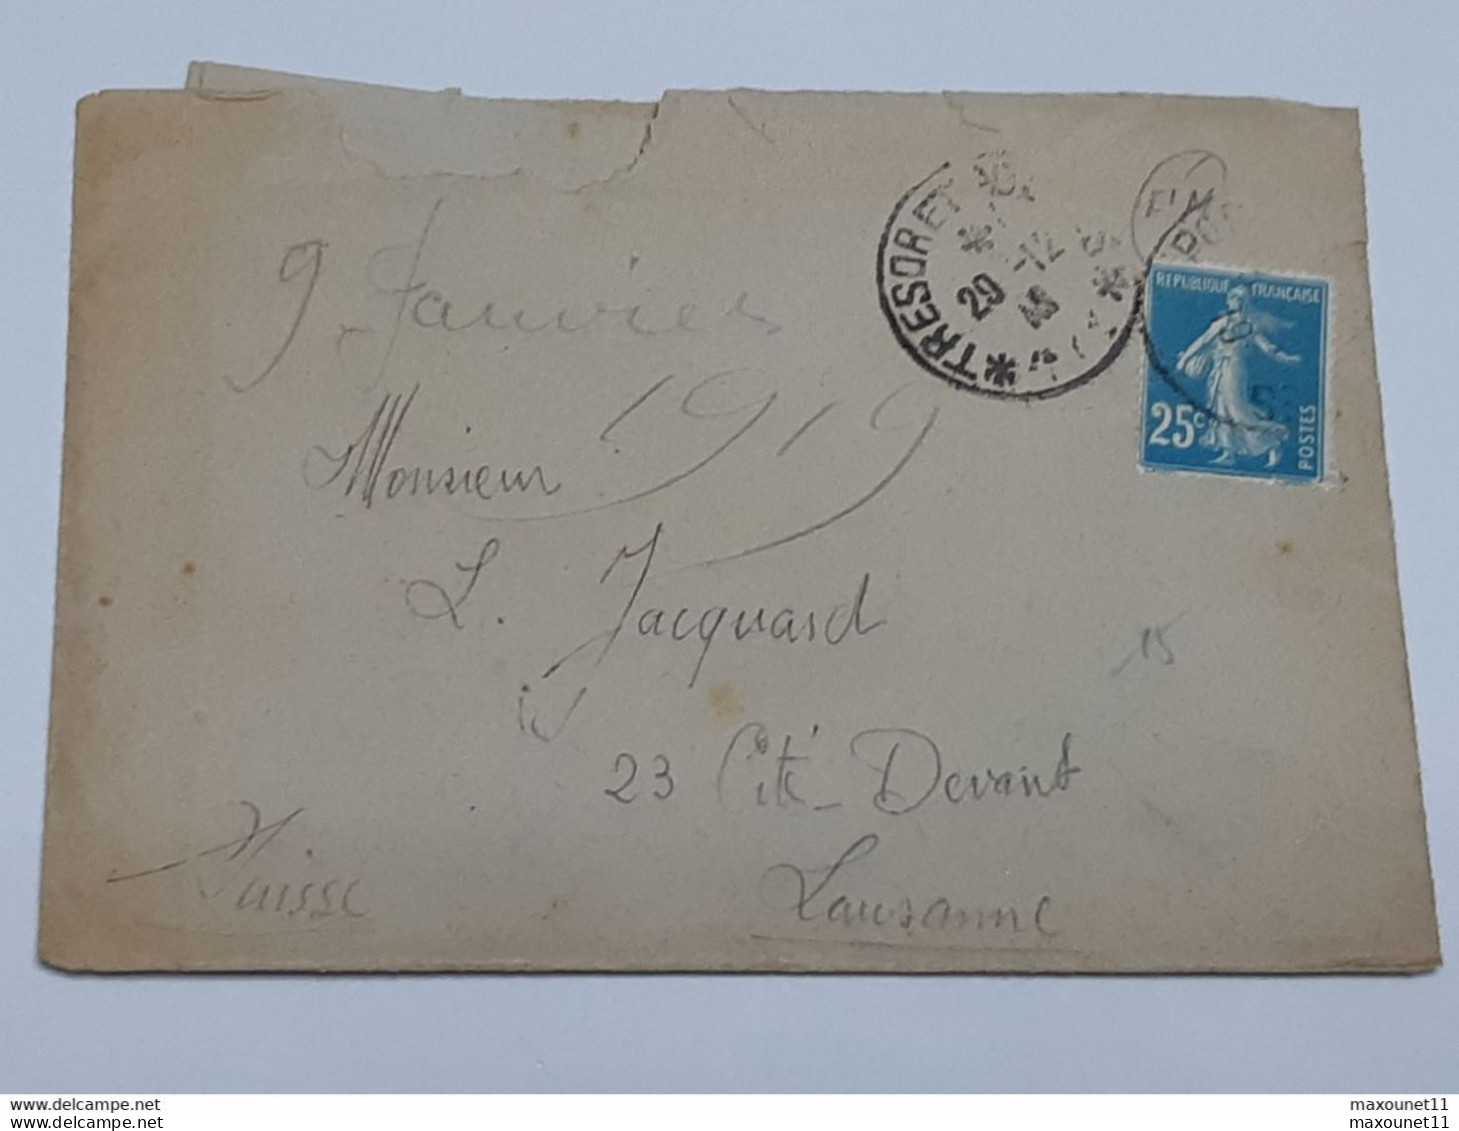 9 Janvier
1919
Monsieur
L. Jacquard
23 Cité-Devant
Lausanne
Suisse
15
*TRESOR ET
29 -12
REPUBLIQUE FRANÇAISE
25c
POSTES
delcampe.net
delcampe.net
maxounet11
maxounet11